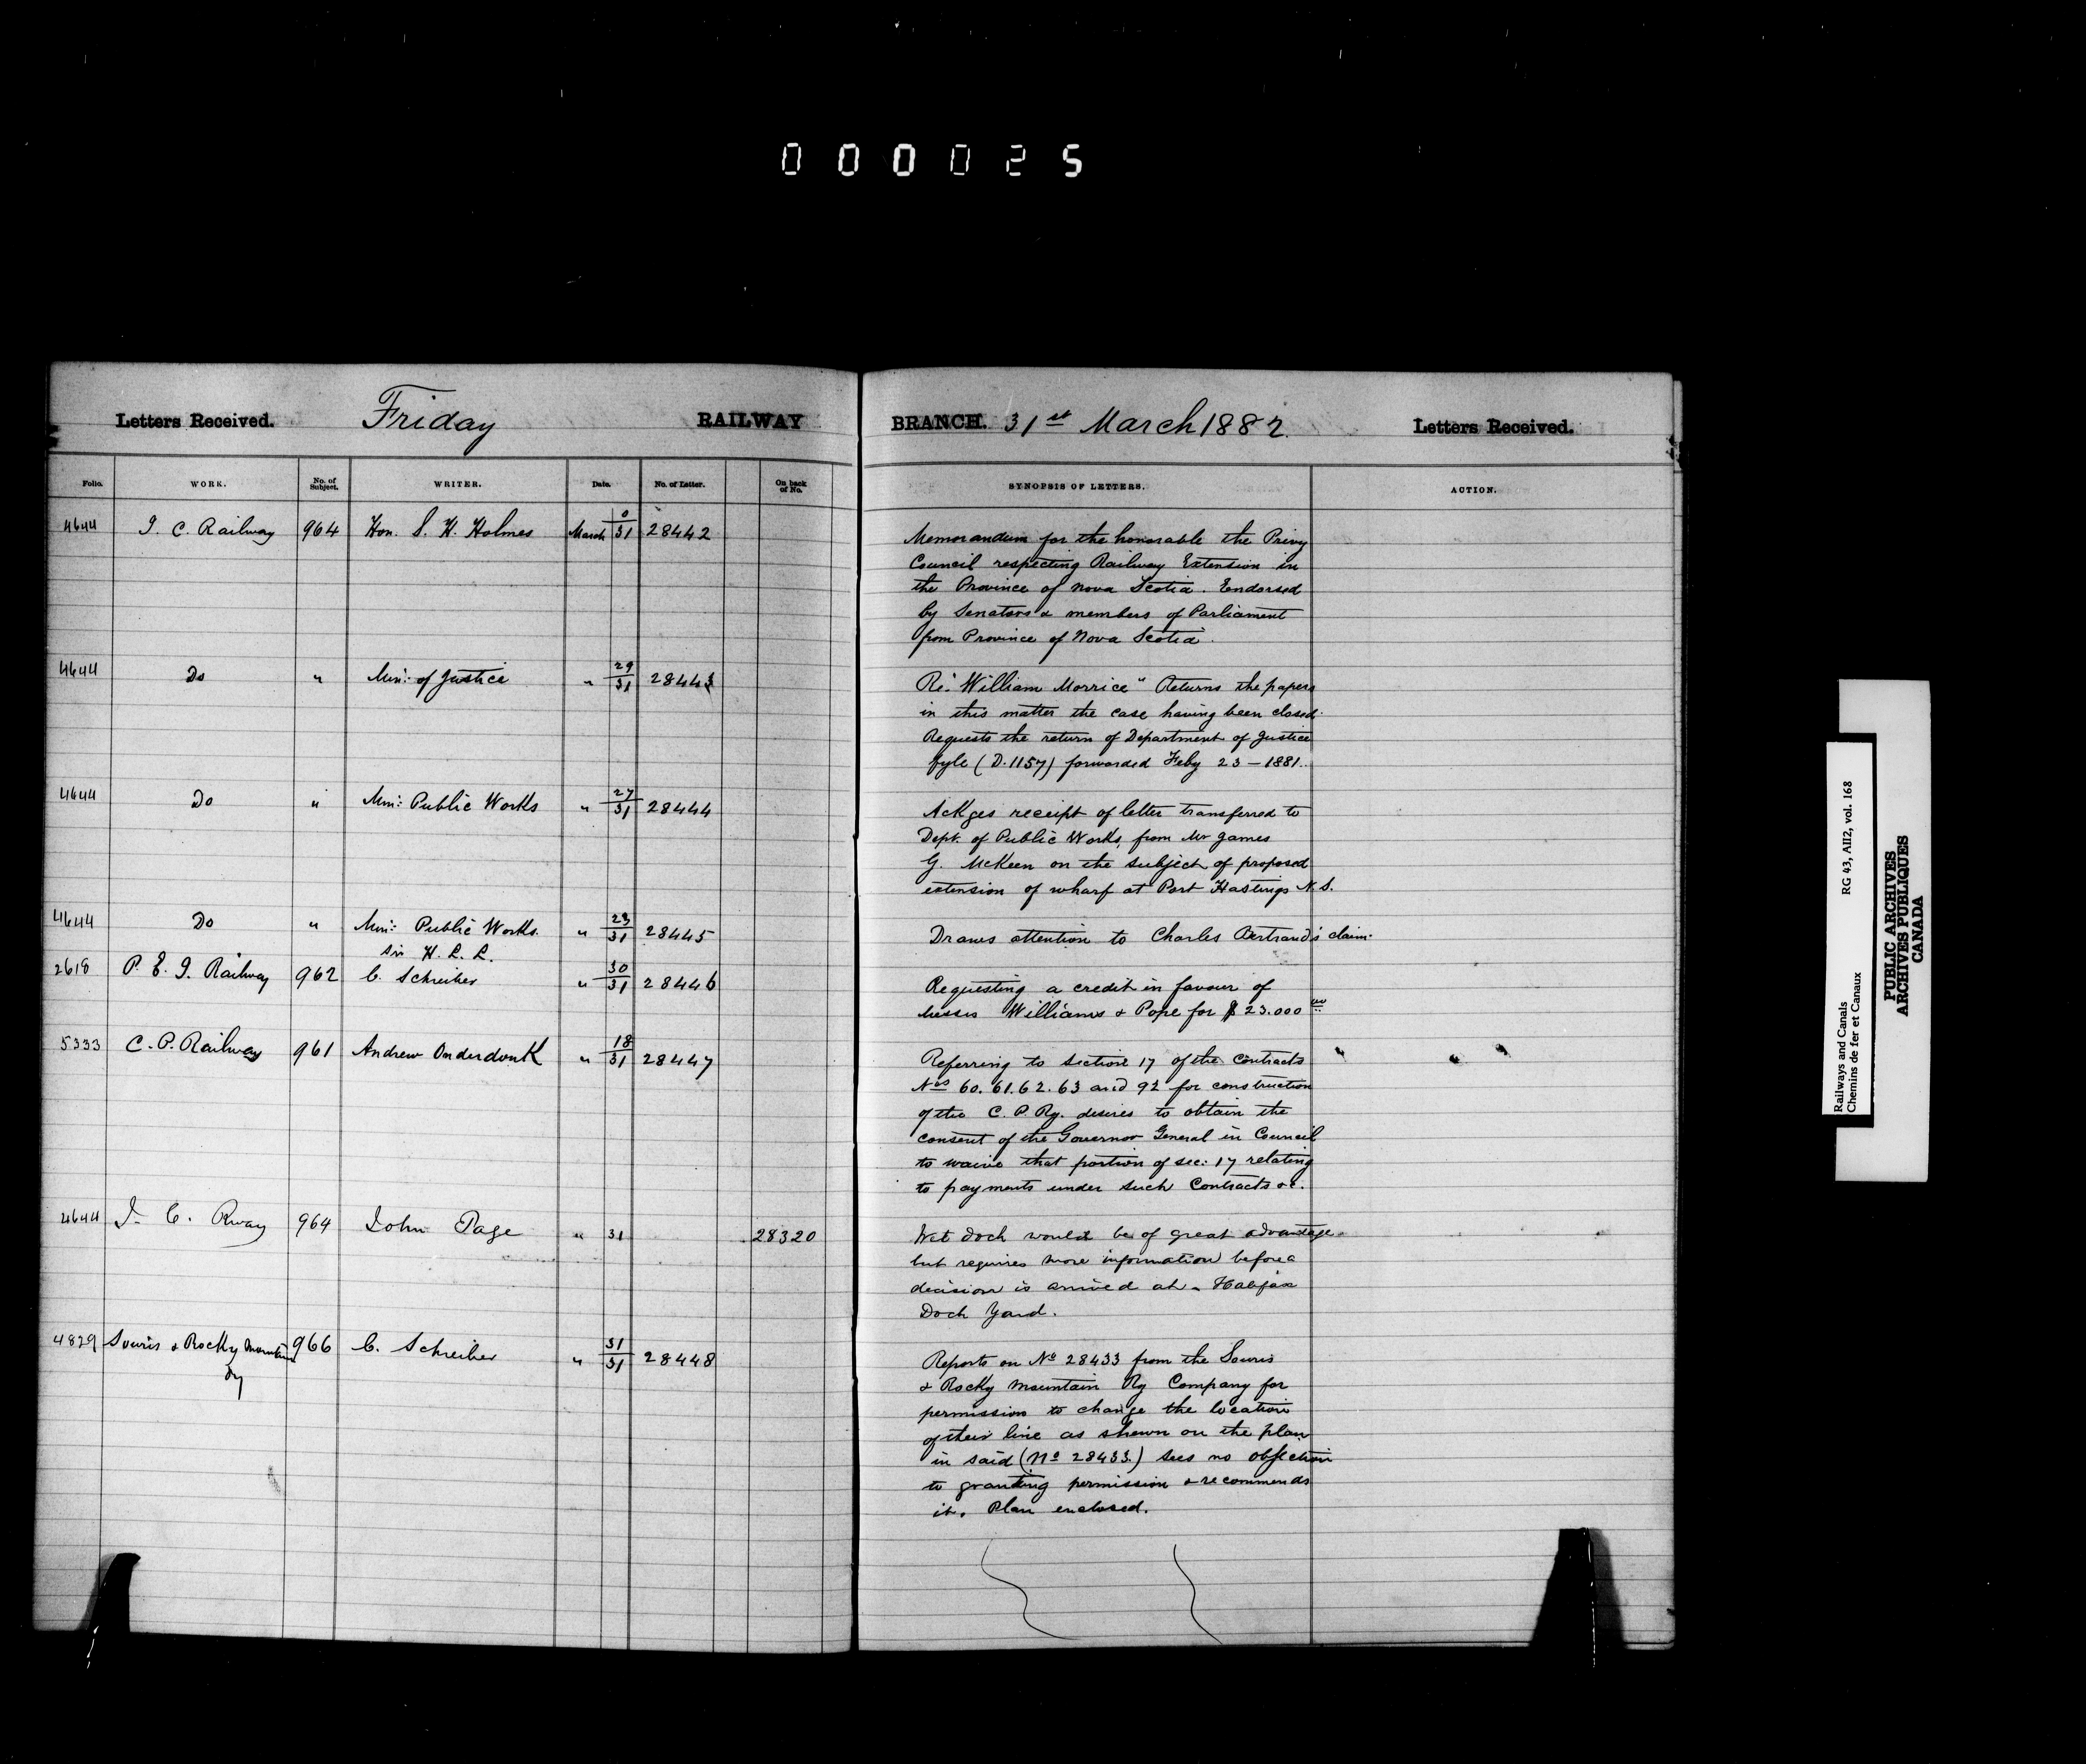 000025
Letters Received. Friday RAILWAY BRANCH. 31st March 1882. Letters Received.
Folio. WORK. No. of Subject. WRITER. Date. No. of Letter. On back of No. SYNOPSIS OF LETTERS. ACTION.
4644 I. C. Railway 964 Hon. S. H. Holmes March 0/31 28442 Memorandum for the honorable the Privy
Council respecting Railway Extension in
the Province of Nova Scotia. Endorsed
by Senators & members of Parliament
from Province of Nova Scotia.
4644 Do " Min: of Justice " 29/31 28443 Re: "William Morrice" Returns the papers
in this matter the case having been closed.
Requests the return of Department of Justice
fyle (D. 1157) forwarded Feby 23 - 1881.
4644 Do " Min: Public Works " 27/31 28444 Ackges receipt of letter transferred to
Dept. of Public Works, from Mr James
G. McKeen on the subject of proposed
extension of wharf at Port Hastings N.S.
4644 Do " Min: Public Works. " 23/31 28445 Draws attention to Charles Bertrand's claim.
Sir H. L. L.
2618 P. E. I. Railway 962 C. Schreiber " 30/31 28446 Requesting a credit in favour of
Messrs Williams & Pope for $23.000 00
5333 C. P. Railway 961 Andrew Onderdonk " 18/31 28447 Referring to section 17 of the Contracts
Nos 60. 61. 62. 63 and 92 for construction
of the C. P. Ry. desires to obtain the
consent of the Governor General in Council
to waive that portion of sec: 17 relating
to payments under such Contracts &c.
4644 I. C. Rway 964 John Page " 31 28320 Wet dock would be of great advantage
but requires more information before a
decision is arrived at - Halifax
Dock Yard.
4829 Souris & Rocky Mountain 966 C. Schreiber " 31/31 28448 Reports on No 28433 from the Souris
Ry
& Rocky Mountain Ry Company for
permission to change the location
of their line as shewn on the plan
in said (No 28433.) sees no objection
to granting permission & recommends
it. Plan enclosed.
Railways and Canals RG 43, AII2, vol. 168
Chemins de fer et Canaux
PUBLIC ARCHIVES
ARCHIVES PUBLIQUES
CANADA